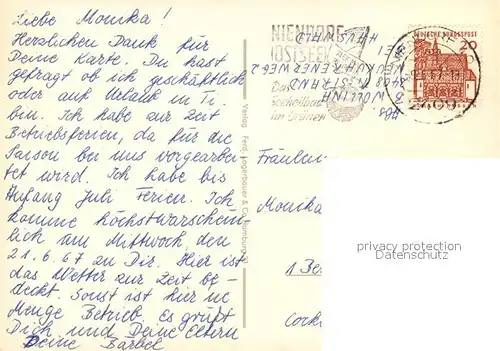 Liebe Monika!
Herzlichen Dank für
Deine Karte. Du hast
gefragt ob ich geschäftlich
oder auf Urlaub in Ti.
bin. Ich habe zur Zeit
Betriebsferien, da für die
Saison bei uns vorgearbei-
tet wird. Ich habe bis
Anfang Juli Ferien. Ich
komme höchstwarschein
lich am Mittwoch, den
21.6.67 zu Dir. Hier ist
das Wetter zur Zeit be-
deckt. Sonst ist hier ne
Menge Betrieb. Es grüßt
Dich und Deine Eltern
Deine Bärbel
Verlag Ferd. Lagerbauer & Co. Hamburg
NIENDORF
OSTSEE
Das
Seeheilbad
im Grünen
DEUTSCHE BUNDESPOST
20
Abs.
B. WOLLIN
2408
HAUS WILD
Fräulein
Monika
1 Be
Cock
privacy protection
oldthing.de